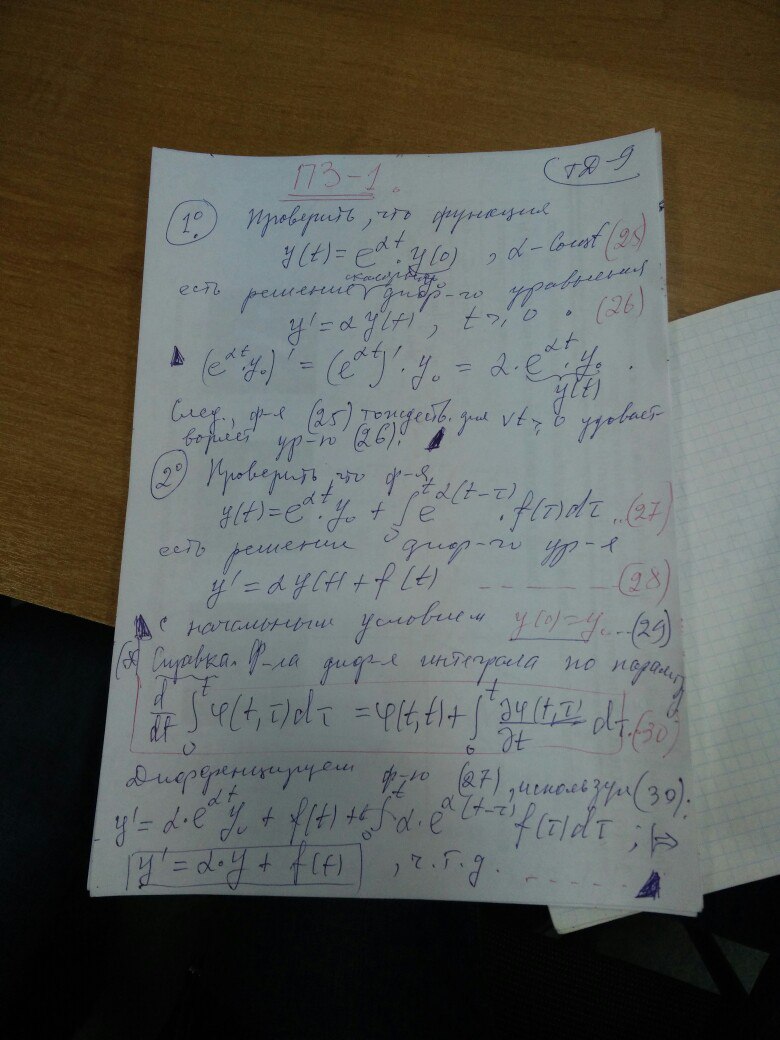 ПЗ-1.
СтД-9
1° Проверить, что функция
y(t) = e^{αt} · y(0) , α - Const (25)
скаляры
есть решение диф-го уравнения
y' = αy(t) , t ≥ 0 . (26)
(e^{αt} · y₀)' = (e^{αt})' · y₀ = α · e^{αt} · y₀ .
y(t)
След., ф-я (25) тождеств. для ∀t ≥ 0 удовлет-
воряет ур-ю (26).
2° Проверить, что ф-я
y(t) = e^{αt} · y₀ + ∫₀^t e^{α(t-τ)} · f(τ)dτ ... (27)
есть решение диф-го ур-я
y' = αy(t) + f(t) - - - - - - (28)
с начальным условием y(0) = y₀ ... (29)
Справка. Ф-ла диф-я интеграла по парам-у
d/dt ∫₀^t φ(t,τ)dτ = φ(t,t) + ∫₀^t ∂φ(t,τ)/∂t dτ . (30)
Дифференцируем ф-ю (27), используя (30):
y' = α · e^{αt} y₀ + f(t) + ∫₀^t α · e^{α(t-τ)} f(τ)dτ ; ⇒
y' = α · y + f(t) , ч.т.д. - - - - -